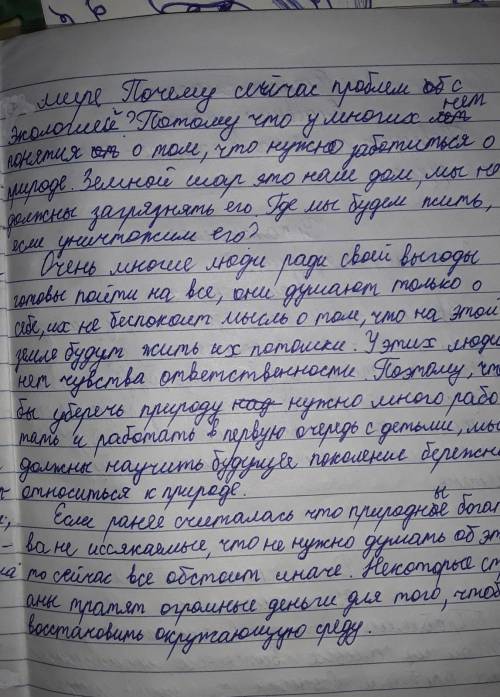 мире Почему сейчас проблем с
экологией? Потому что у многих нет
понятия о том, что нужно заботиться о
природе. Земной шар это наш дом, мы не
должны загрязнять его. Где мы будем жить,
если уничтожим его?
Очень многие люди ради своей выгоды
готовы пойти на все, они думают только о
себе, их не беспокоит мысль о том, что на этой
земле будут жить их потомки. У этих люди
нет чувства ответственности. Поэтому, что
бы уберечь природу нужно много рабо
тать и работать в первую очередь с детьми, мы
должны научить будущее поколение бережн
относиться к природе.
Если ранее считалась что природные богат
ва не иссякаемые, что не нужно думать об эт
то сейчас все обстоит иначе. Некоторые ст
аны тратят огромные деньги для того, чтоб
восстановить окружающую среду.